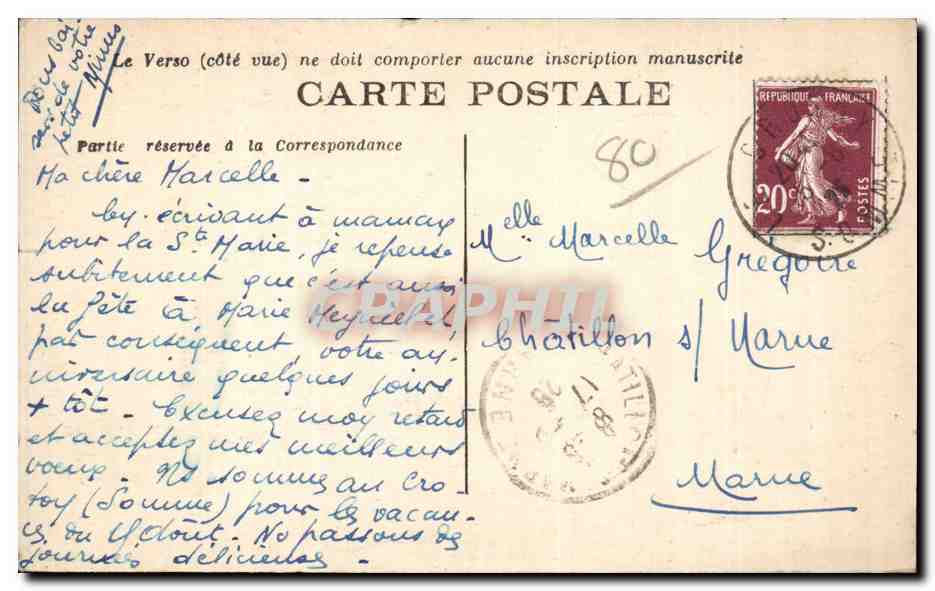 Le Verso (côté vue) ne doit comporter aucune inscription manuscrite
CARTE POSTALE
Partie réservée à la Correspondance
80
REPUBLIQUE FRANÇAISE
20c
POSTES
Ma chère Marcelle -
écrivant à maman
pour la Ste Marie, je repense
subitement que c'est aussi
la fête à Marie
par conséquent, votre an-
niversaire quelques jours
+ tôt. Excusez moy retard
et acceptez mes meilleurs
voeux. Ns sommes au Cro-
toy (Somme) pour les vacan-
ces du 15 Août. Ns passons des
journées délicieuses -
Tous bai-
sers de votre
petit Ninus
Melle Marcelle Grégoire
Châtillon s/ Marne
Marne
CPAPHIL